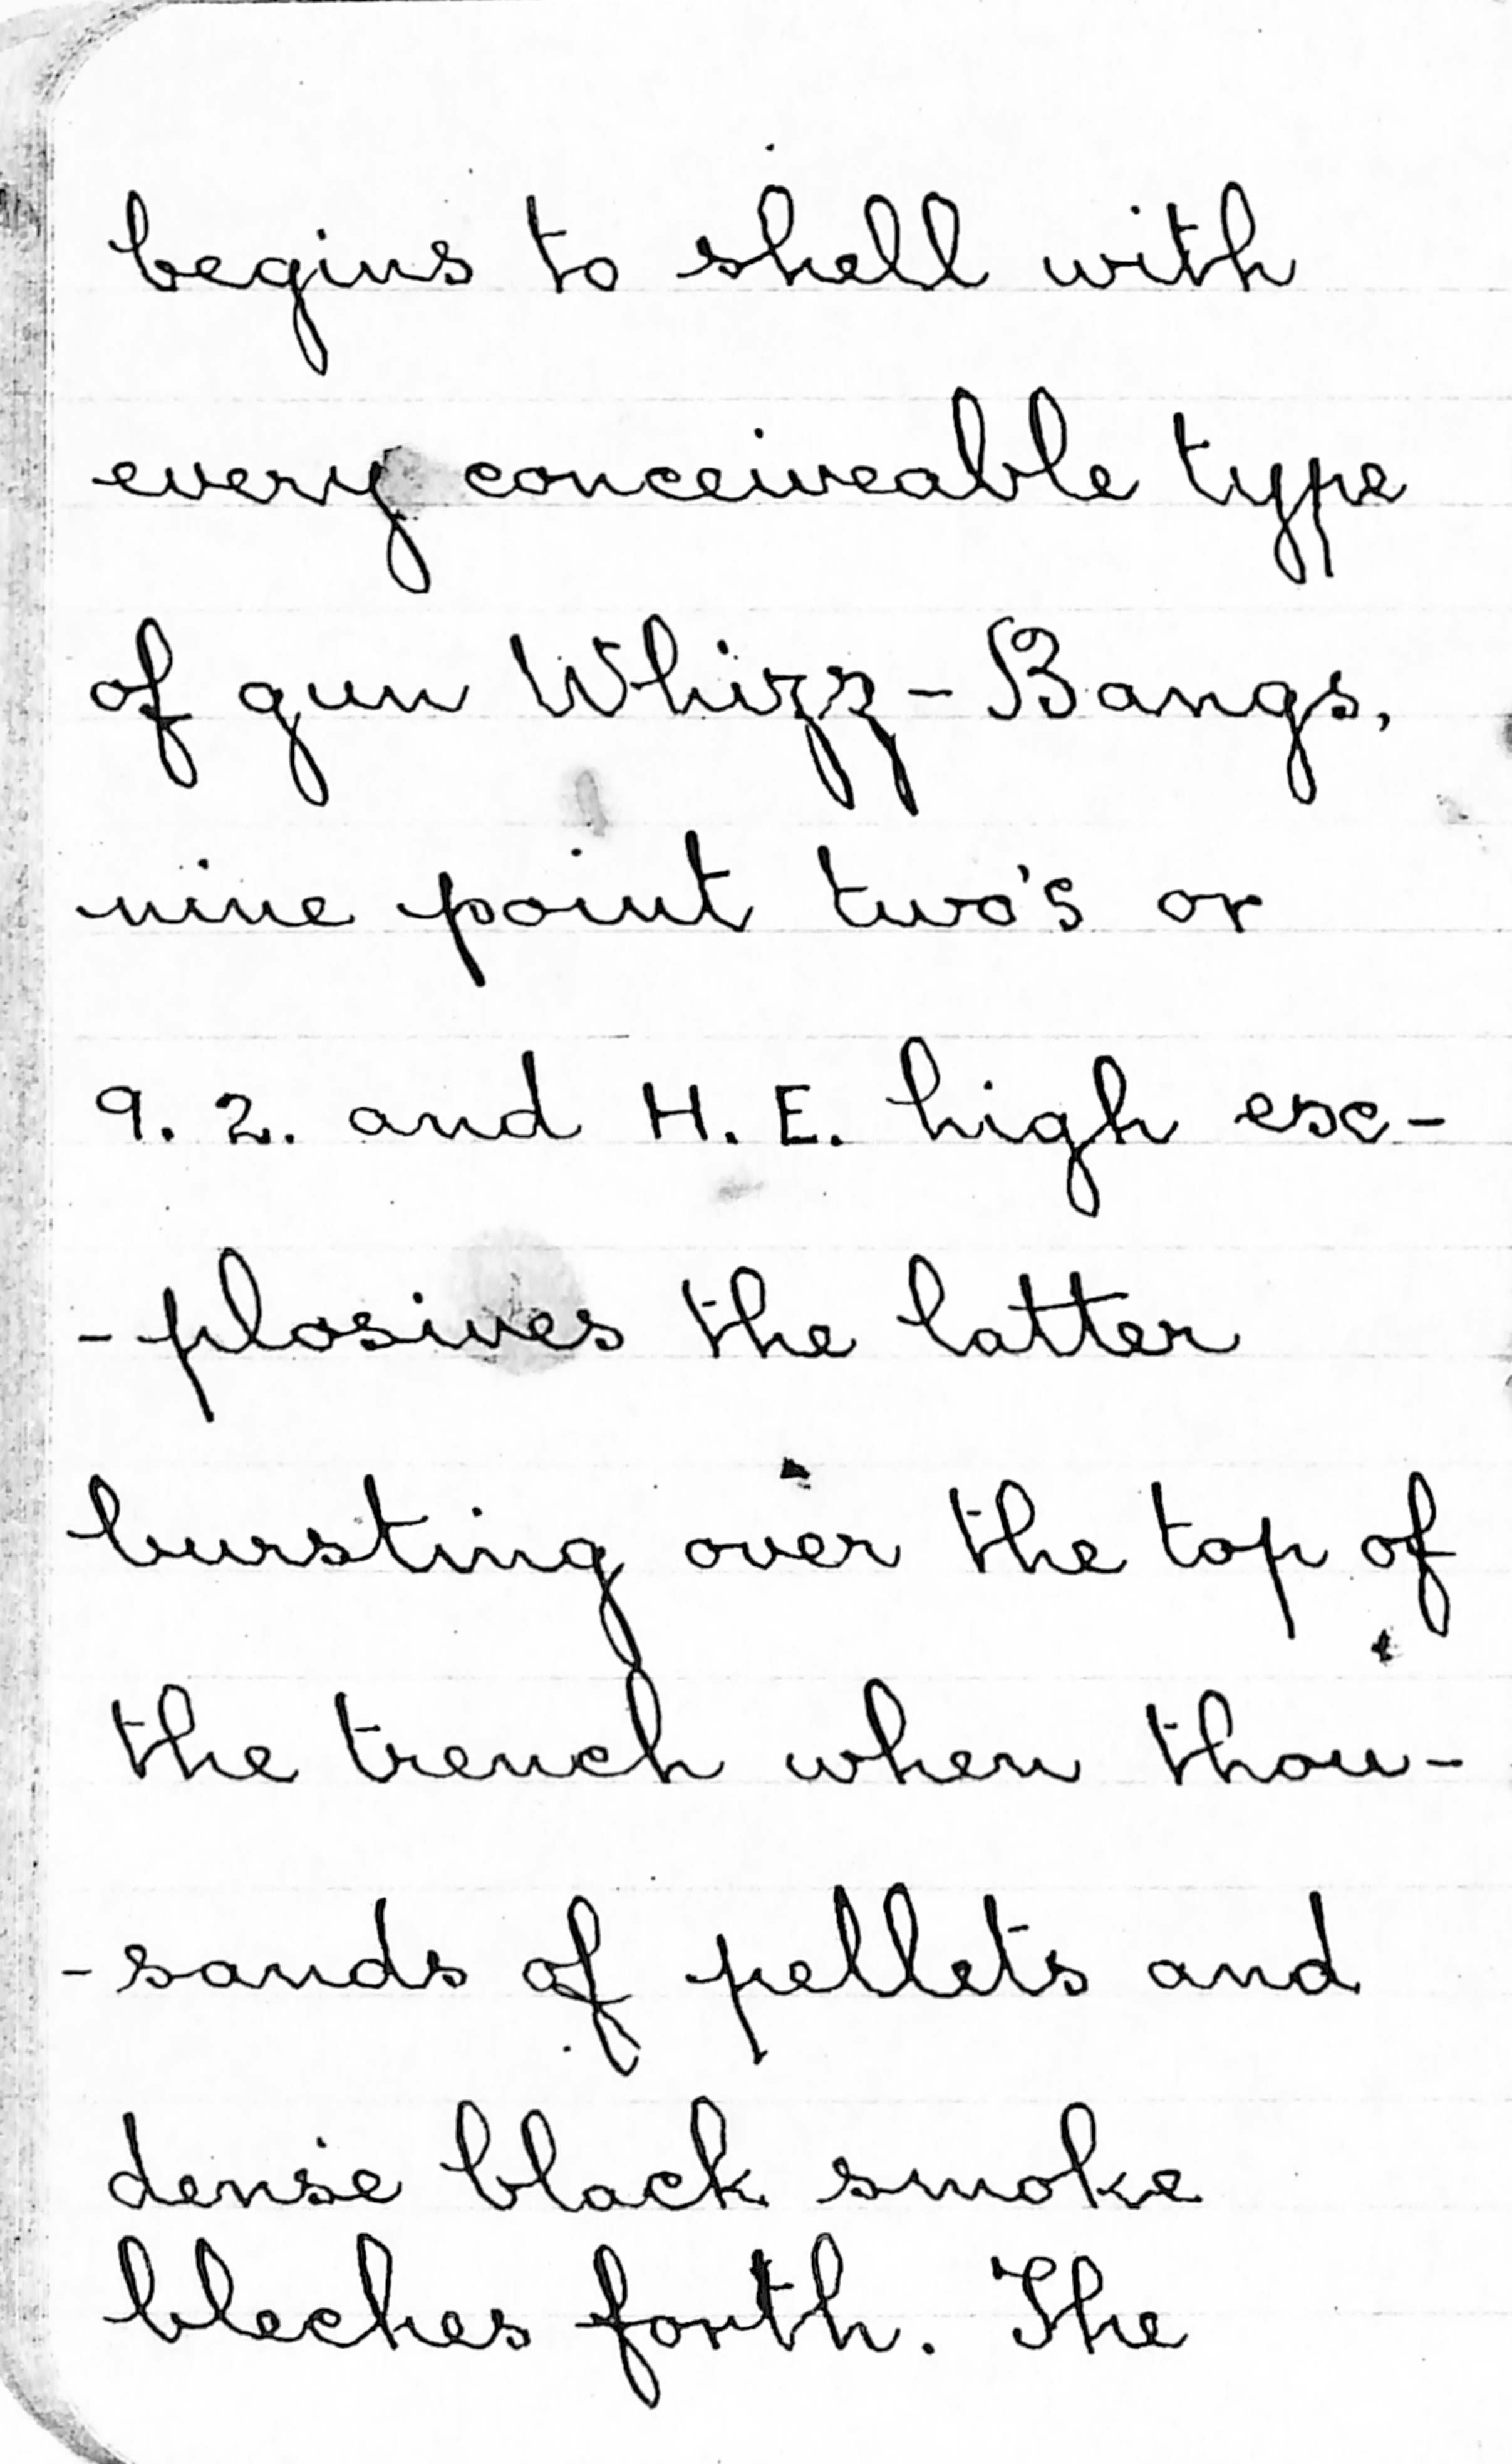 begins to shell with
every conceiveable type
of gun Whizz-Bangs,
nine point two's or
9.2. and H.E. high ex-
-plosives the latter
bursting over the top of
the trench when thou-
-sands of pellets and
dense black smoke
bleches forth. The